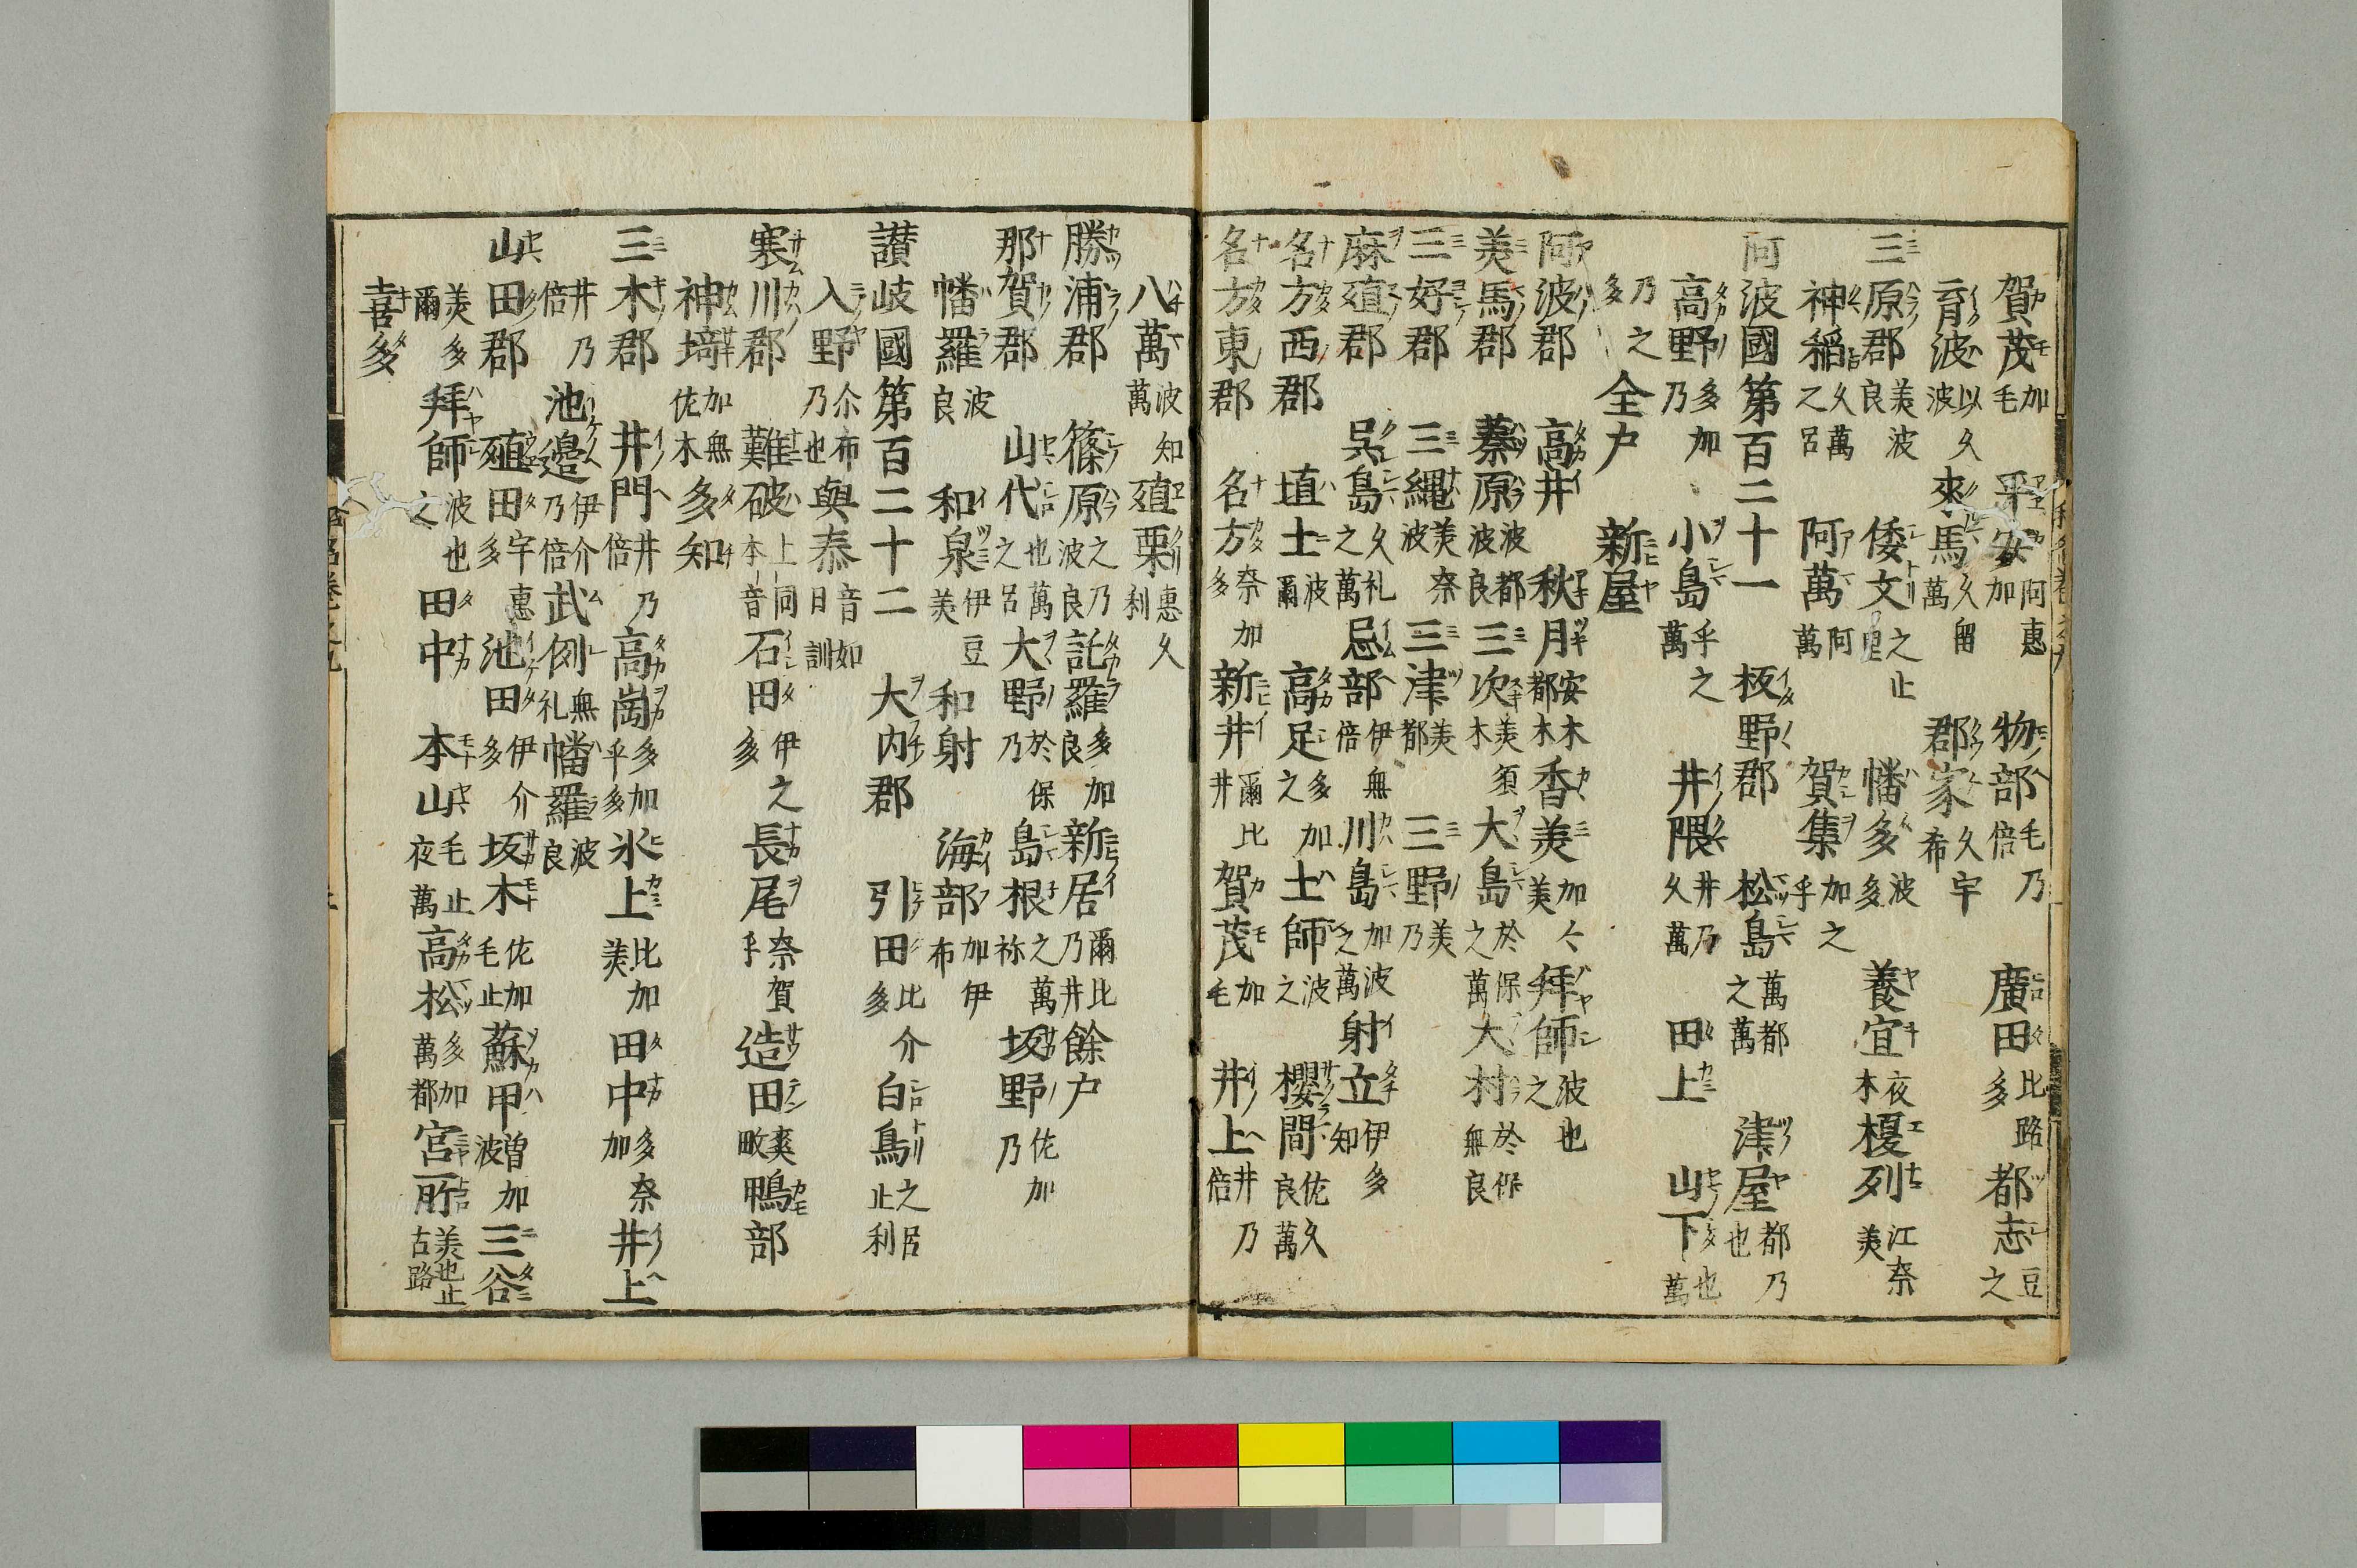 賀茂加毛 平安阿惠加 物部毛乃倍 廣田比路多 都志豆之
育波以久波 來馬久留萬 郡家久宇布
三原郡美波良 倭文之止里 幡多波多 養宜夜木 榎列江奈美
神稲久萬之呂 阿萬阿萬 賀集加之乎
阿波國第百二十一 板野郡 松島萬都之萬 津屋都乃也
高野多加乃 小島乎之萬 井隈井乃久萬 田上 山下也萬
乃之多 全户 新屋
阿波郡 高井 秋月安木都木 香美加々美 拜師波也之
美馬郡 蓁原波都波良 三次美須木 大島於保之萬 大村於保無良
三好郡 三繩美奈波 三津美都 三野美乃
麻殖郡 呉島久礼之萬 忌部伊無倍 川島加波之萬 射立伊多知
名方西郡 埴土波爾 高足多加之 土師波之 櫻間佐久良萬
名方東郡 名方奈加多 新井爾比井 賀茂加毛 井上井乃倍
八萬波知萬 殖栗惠久利
勝浦郡 篠原之乃波良 託羅多加良 新居爾比乃井 餘户
那賀郡 山代也萬之呂 大野於保乃 島根之萬祢 坂野佐加乃
幡羅波良 和泉伊豆美 和射 海部加伊布
讃岐國第百二十二 大内郡 引田比介多 白鳥之呂止利
入野尒布乃也 與泰音如日訓
寒川郡 難破上同本音 石田伊之多 長尾奈賀乎 造田爽畋 鴨部
神埼加無佐木 多知
三木郡 井門井乃倍 高崗多加乎 氷上比加美 田中多奈加 井上
井乃倍 池邊伊介乃倍 武例無礼 幡羅波良
山田郡 殖田宇惠多 池田伊介多 坂木佐加毛止 蘇甲曽加波 三谷
美多爾 拜師波也之 田中 本山毛止夜萬 高松多加萬都 宮所美也止古路
喜多